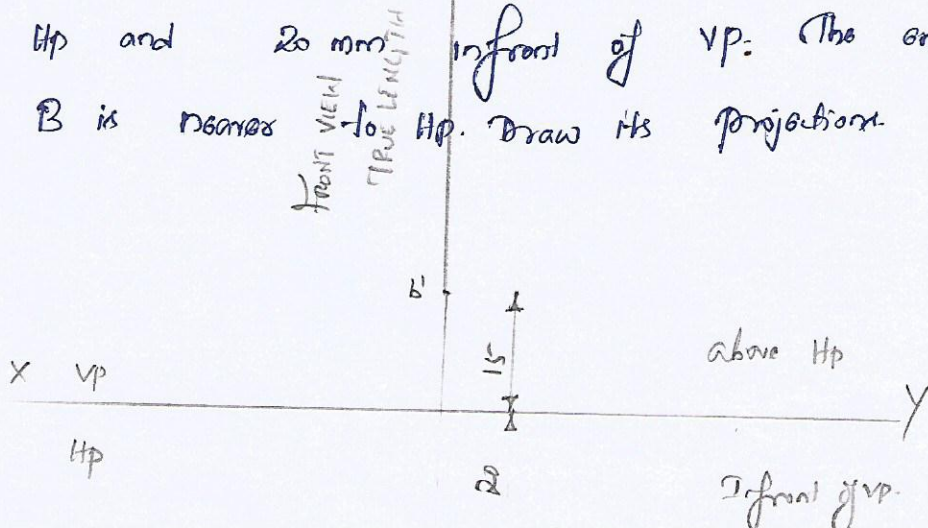 Hp and 20 mm infront of VP. The en
B is nearer to Hp. Draw its projections.
FRONT VIEW
TRUE LENGTH
b'
15
above Hp
X VP
Y
Hp
20
Infront of VP.